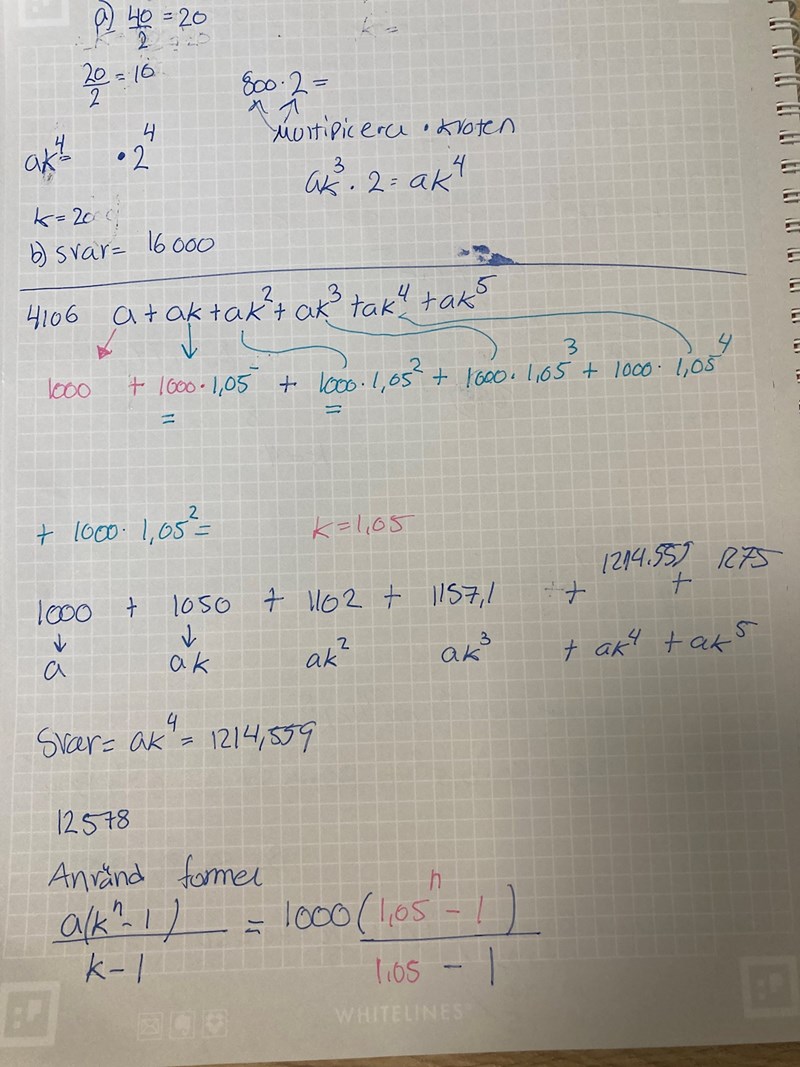 a) 40/2 = 20
k =
20/2 = 10
800 · 2 =
Multiplicera · kvoten
ak⁴= · 2⁴
ak³ · 2 = ak⁴
k = 20
b) svar= 16 000
4106 a + ak + ak² + ak³ + ak⁴ + ak⁵
1000 + 1000 · 1,05 + 1000 · 1,05² + 1000 · 1,05³ + 1000 · 1,05⁴
= =
+ 1000 · 1,05² = k = 1,05
1214.559 1275
1000 + 1050 + 1102 + 1157,1 + +
↓ ↓
a ak ak² ak³ + ak⁴ + ak⁵
Svar= ak⁴ = 1214,559
12578
Använd formel
a(kⁿ-1)/k-1 = 1000(1,05ⁿ - 1)/1.05 - 1
WHITELINES®